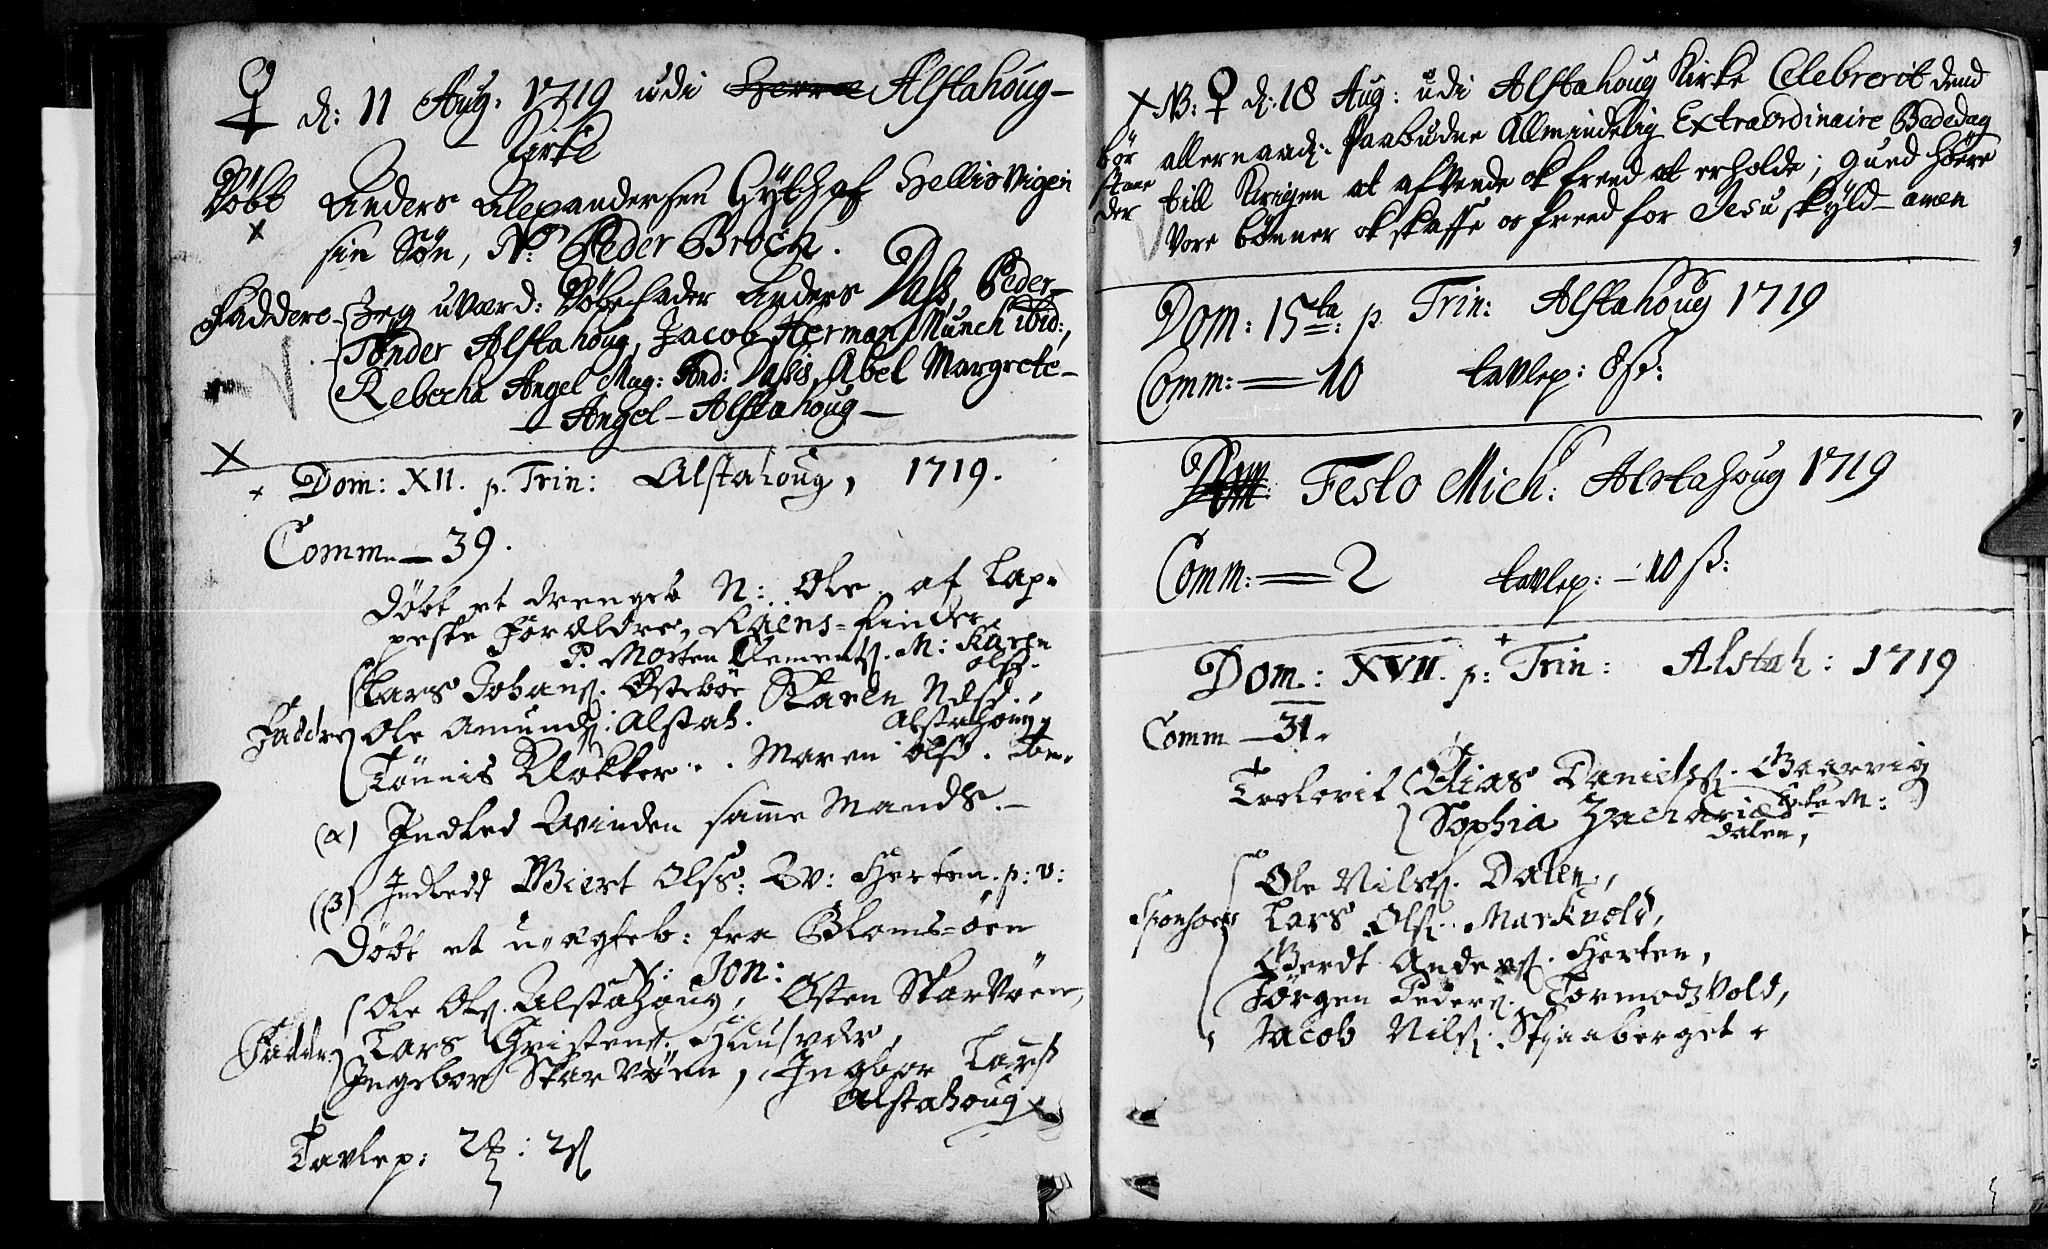 ♀ d: 11 Aug. 1719 udi Herrøe Alstahoug-
Kirke
Døbt Anders Alexandersen Gyth af Hellisvigen
x
sin Søn, N: Peder Broch.
Faddere- Jeg uværd: Døbefader Anders Dass, Peder-
Tønder Alstahoug, Jacob Herman Munch ibid:,
Rebecha Angel Mag: And: Dassis, Abel Margrete-
- Angel - Alstahoug -
x
x Dom: XII. p. Trin: Alstahoug, 1719.
Comm. - 39.
Døbt et drengeb N: Ole. af Lap-
peske Forældre, Raens-finder
P. Morten Clements. M: Karen
Ols.
Lars Johans. Østebøe Karen Nilsd.,
Faddre Ole Amunds. Alstah. Alstahoug
Tønnis Klokker. . Maren Olsd. Tøm.
(α) Indled Qvinden samme Mands. -
(β) Indledd Biert Olss: Qv: Herten. p: v:
Døbt et uægteb: fra Bloms-øen
N: Jon:
Ole Ols. Alstahoug, Østen Skarvøen,
Faddre Lars Christens. Huusvær,
Ingebor Skarvøen, Ingbor Lars
Alstahoug x
Tavlep: 2 : 2 s
x NB: ♀ d: 18 Aug: udi Alstahoug Kirke Celebrerit dend
bør allernaad: Paabudne Allmindelig Extraordinaire Bededag
staae till Krigen at afvende ok freed at erholde; Gued høere
der Vore bønner ok skaffe os freed for Jesu skyld - amen
Dom: 15ta: p. Trin: Alstahoug 1719
Comm: = 10 tavlep: 8 s:
Dom Festo Mich: Alstahoug 1719
Comm: = 2 tavlep: - 10 s:
Dom: XVII. p: Trin: Alstah: 1719
Comm - 31.
Trolovit Elias Daniels. Gaarvig
Sophia Zachariæd
Dalen,
Ole Nils. Dalen,
Sponsores Lars Ols. Markvold,
Gerdt Anders. Herten,
Jørgen Peders. Tormodsvold,
Jacob Nils. Skjaaberget